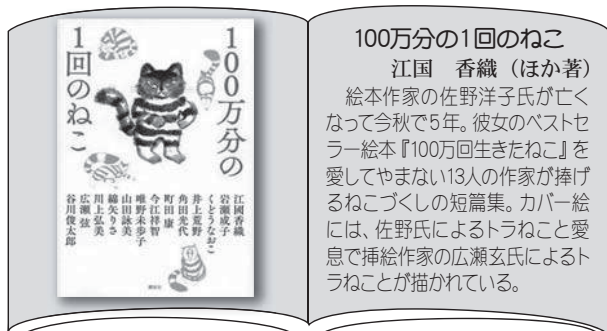 100万分の
1回のねこ
江國香織
岩瀬成子
くどうなおこ
井上荒野
角田光代
町田康
今江祥智
唯野未歩子
山田詠美
綿矢りさ
川上弘美
広瀬弦
谷川俊太郎
講談社
100万分の1回のねこ
江国　香織（ほか著）
絵本作家の佐野洋子氏が亡く
なって今秋で5年。彼女のベストセ
ラー絵本『100万回生きたねこ』を
愛してやまない13人の作家が捧げ
るねこづくしの短篇集。カバー絵
には、佐野氏によるトラねこと愛
息で挿絵作家の広瀬玄氏によるト
ラねことが描かれている。